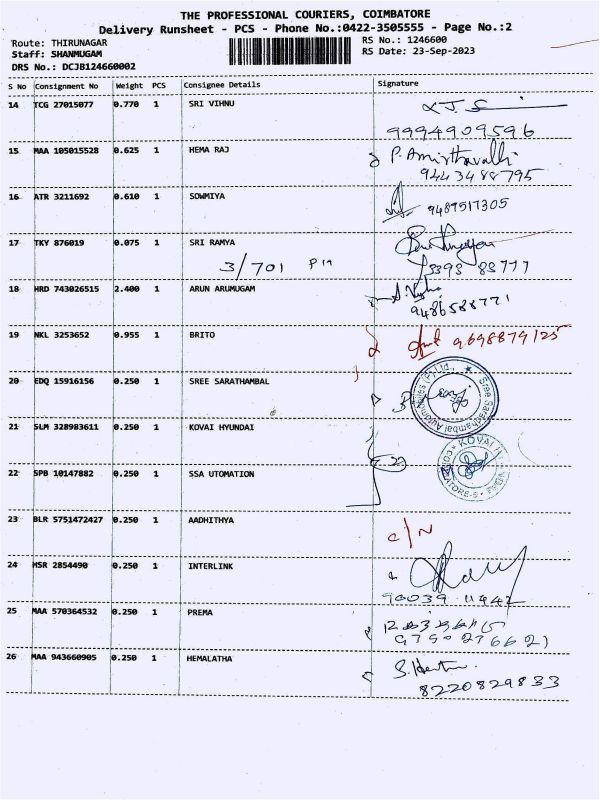 THE PROFESSIONAL COURIERS, COIMBATORE
Delivery Runsheet - PCS - Phone No.:0422-3505555 - Page No.:2
Route: THIRUNAGAR RS No.: 1246600
Staff: SHANMUGAM RS Date: 23-Sep-2023
DRS No.: DCJB124660002
S No Consignment No Weight PCS Consignee Details Signature
14 TCG 27015077 0.770 1 SRI VIHNU
9994909596
15 MAA 105015528 0.625 1 HEMA RAJ P. Amirthavalli
9443488795
16 ATR 3211692 0.610 1 SOWMIYA 9487517305
17 TKY 876019 0.075 1 SRI RAMYA
3/701
18 HRD 743026515 2.400 1 ARUN ARUMUGAM
9486588771
19 NKL 3253652 0.955 1 BRITO 9698879125
20 EDQ 15916156 0.250 1 SREE SARATHAMBAL
Sree Sarathambal Automobiles (P) Ltd.,
21 SLM 328983611 0.250 1 KOVAI HYUNDAI
KOVAI
22 SPB 10147882 0.250 1 SSA UTOMATION
23 BLR 5751472427 0.250 1 AADHITHYA C/N
24 MSR 2854490 0.250 1 INTERLINK
90039 11942
25 MAA 570364532 0.250 1 PREMA
9750276621
26 MAA 943660905 0.250 1 HEMALATHA
8220829833